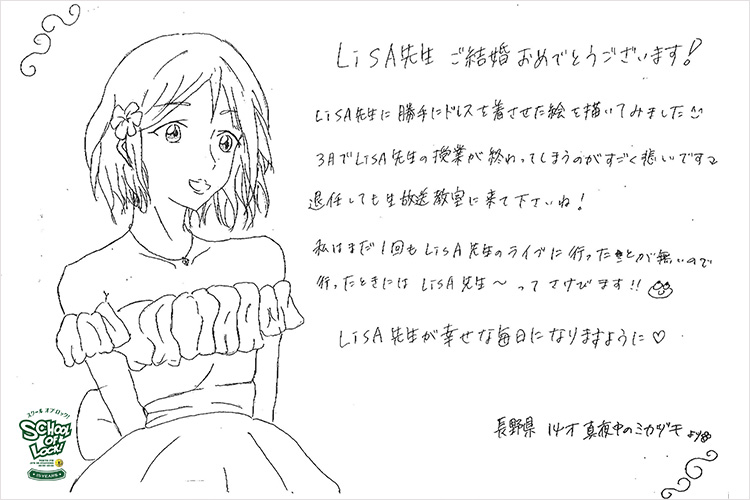 LiSA先生 ご結婚おめでとうございます!
LiSA先生に勝手にドレスを着させた絵を描いてみました
3月でLiSA先生の授業が終わってしまうのがすごく悲しいです
退任しても生放送教室に来て下さいね!
私はまだ1回もLiSA先生のライブに行ったことが無いので
行ったときには LiSA先生〜 って さけびます!!
LiSA先生が幸せな毎日になりますように♡
長野県 14才 真夜中のミカヅキ より
スクール オブ ロック!
SCHOOL
OF
LOCK!